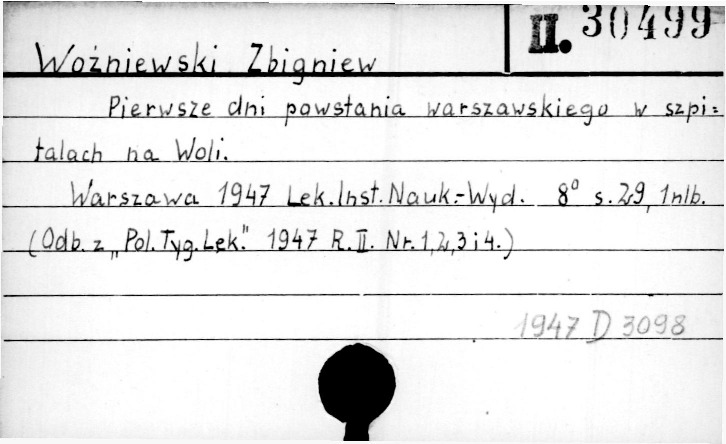 II. 30499
Woźniewski Zbigniew
Pierwsze dni powstania warszawskiego w szpi=
talach na Woli.
Warszawa 1947 Lek. Inst. Nauk.-Wyd. 8° s. 29, 1 nlb.
(Odb. z „Pol. Tyg. Lek." 1947 R. II. Nr. 1, 2, 3 i 4.)
1947 D 3098